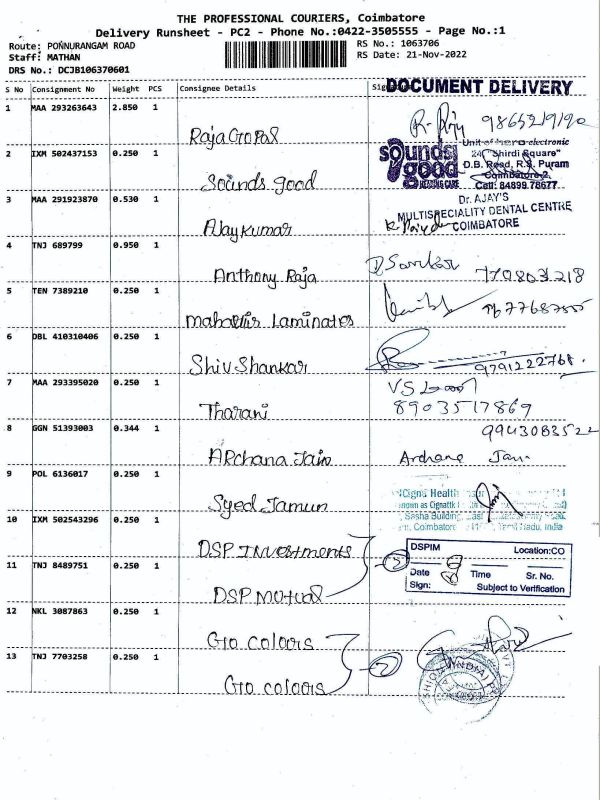 THE PROFESSIONAL COURIERS, Coimbatore
Delivery Runsheet - PC2 - Phone No.:0422-3505555 - Page No.:1
Route: PONNURANGAM ROAD
Staff: MATHAN
DRS No.: DCJB106370601
RS No.: 1063706
RS Date: 21-Nov-2022
S No Consignment No Weight PCS Consignee Details
DOCUMENT DELIVERY
1 MAA 293263643 2.850 1
RajaGopal
2 IXM 502437153 0.250 1
Sounds good
sounds good
HEARING CARE
Unit of hera electronic
24, "Shirdi Square"
D.B. Road, R.S. Puram
Coimbatore-2,
Cell: 84899.78677
3 MAA 291923870 0.530 1
Ajay kumar
Dr. AJAY'S
MULTISPECIALITY DENTAL CENTRE
COIMBATORE
4 TNJ 689799 0.950 1
Anthony Raja
5 TEN 7389210 0.250 1
Laminates
6 DBL 410310406 0.250 1
Shiv Shankar
9791222768
7 MAA 293395020 0.250 1
Tharani
8903517869
8 GGN 51393003 0.344 1
9943083522
Archana Jain
Archana Jain
9 POL 6136017 0.250 1
Syed Jamun
Cigna Health
Sasha Building, East
Coimbatore Tamil Nadu, India
10 IXM 502543296 0.250 1
DSP Investments
11 TNJ 8489751 0.250 1
DSP Mutual
DSPIM Location:CO
Date Time Sr. No.
Sign: Subject to Verification
12 NKL 3087863 0.250 1
Gro colours
13 TNJ 7703258 0.250 1
Gro colours